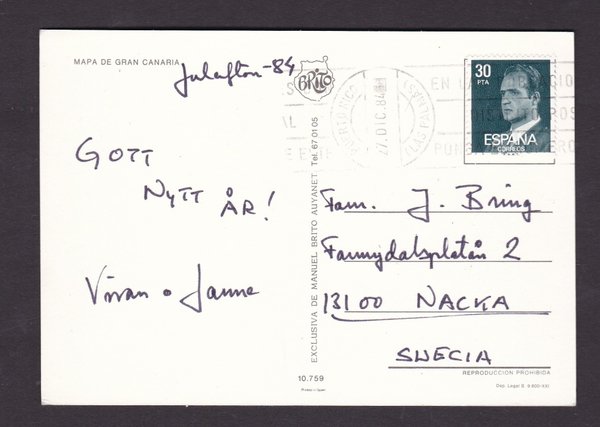 MAPA DE GRAN CANARIA
Julafton -84
GOTT
NYTT ÅR!
Vivan o Janne
BRITO
EXCLUSIVA DE MANUEL BRITO AUYANET Tel. 67 01 05
10.759
PUERTO RICO
27.DIC.84
(LAS PALMAS)
30
PTA
ESPAÑA
CORREOS
Fam. J. Bring
Fannydalsplatån 2
131 00 NACKA
SUECIA
REPRODUCCION PROHIBIDA
Dep. Legal B. 9.800-XXI